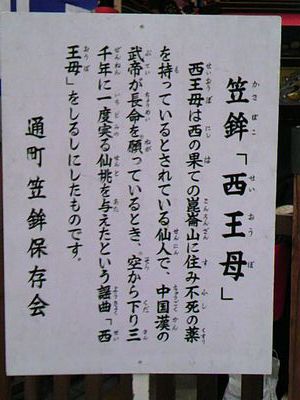 笠鉾「西王母」
西王母は西の果ての崑崙山に住み不死の薬
を持っているとされている仙人で、中国漢の
武帝が長命を願っているとき、空から下り三
千年に一度実る仙桃を与えたという謡曲「西
王母」をしるしにしたものです。
通町笠鉾保存会